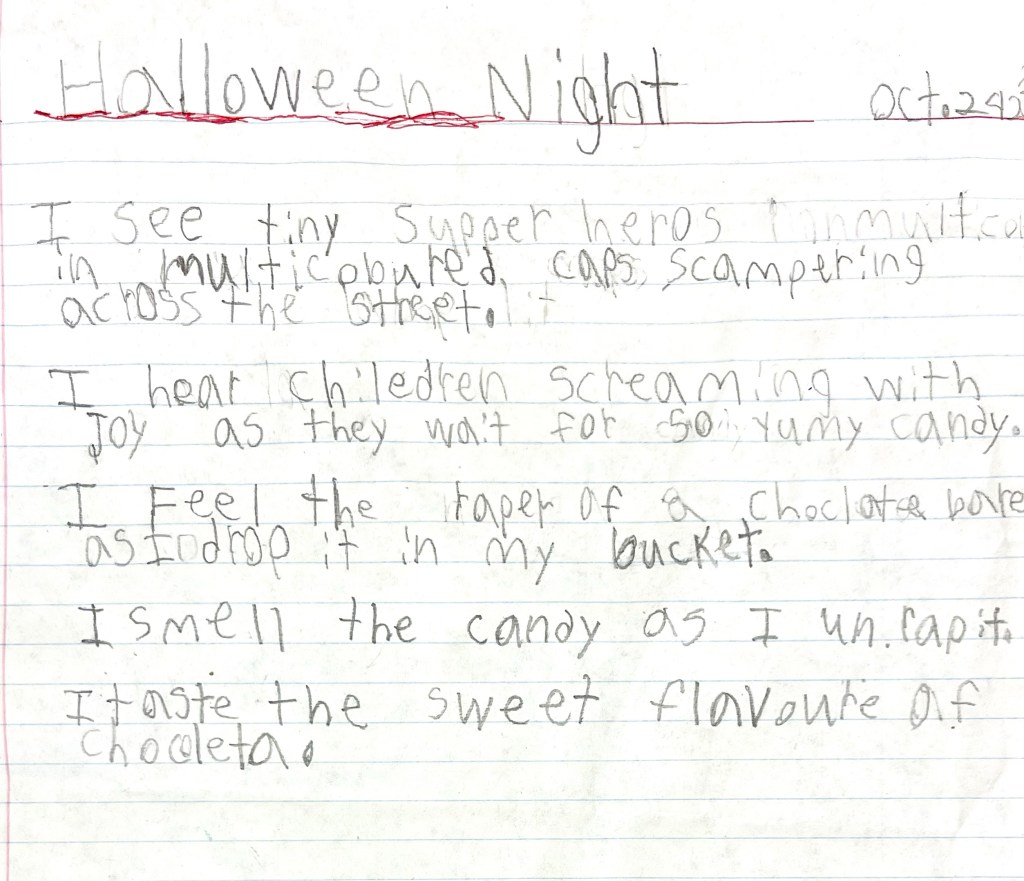 Halloween Night Oct. 24
I see tiny supper heros
in multicoloured caps scampering
across the street.
I hear chiledren screaming with
Joy as they wait for so yumy candy.
I Feel the raper of a choclate bare
as I drop it in my bucket.
I smell the candy as I un rap it.
I taste the sweet flavoure of
chocleta.